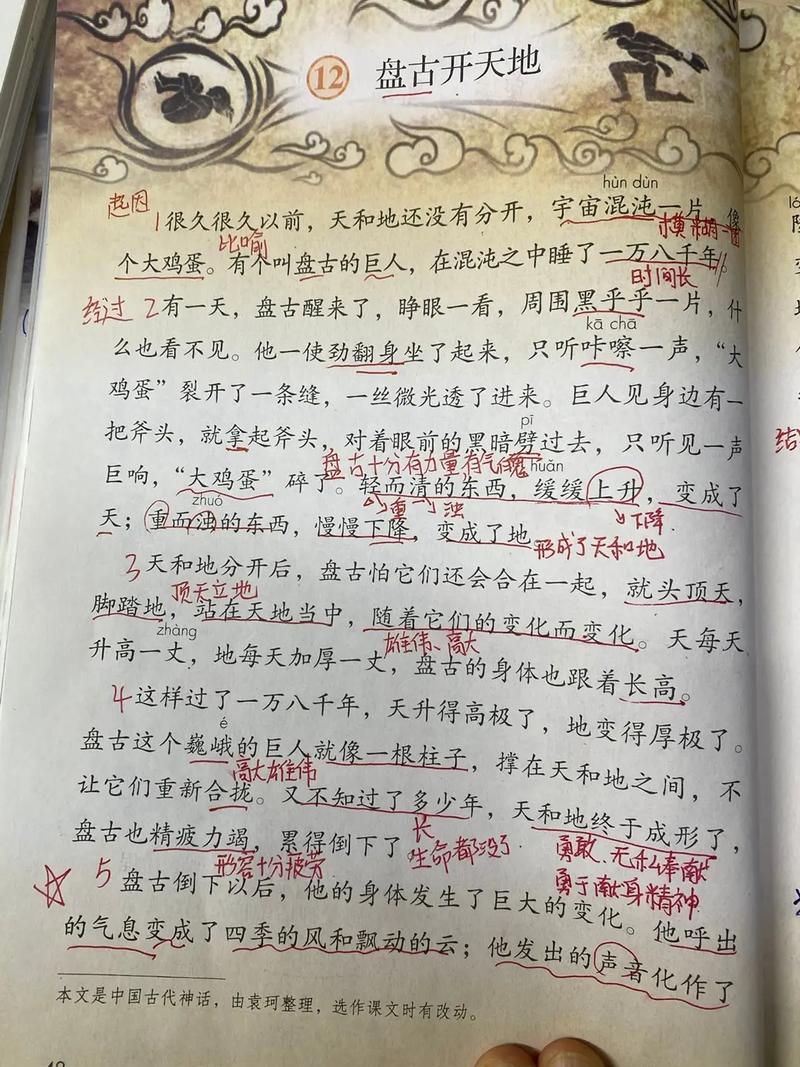 12 盘古开天地
hùn dùn
起因 1 很久很久以前，天和地还没有分开，宇宙混沌一片，像
比喻
个大鸡蛋。有个叫盘古的巨人，在混沌之中睡了一万八千年。
时间长
经过 2 有一天，盘古醒来了，睁眼一看，周围黑乎乎一片，什
kā chā
么也看不见。他一使劲翻身坐了起来，只听咔嚓一声，“大
鸡蛋”裂开了一条缝，一丝微光透了进来。巨人见身边有一
pī
把斧头，就拿起斧头，对着眼前的黑暗劈过去，只听见一声
盘古十分有力量有气魄
huǎn
巨响，“大鸡蛋”碎了。轻而清的东西，缓缓上升，变成了
zhuó
重 浊
下降
天；重而浊的东西，慢慢下降，变成了地。
形成了天和地
3 天和地分开后，盘古怕它们还会合在一起，就头顶天，
顶天立地
脚踏地，站在天地当中，随着它们的变化而变化。天每天
zhàng
雄伟、高大
升高一丈，地每天加厚一丈，盘古的身体也跟着长高。
4 这样过了一万八千年，天升得高极了，地变得厚极了。
é
盘古这个巍峨的巨人就像一根柱子，撑在天和地之间，不
高大雄伟
让它们重新合拢。又不知过了多少年，天和地终于成形了，
长
盘古也精疲力竭，累得倒下了
形容十分疲劳
生命都没了
勇敢、无私奉献
勇于献身精神
5 盘古倒下以后，他的身体发生了巨大的变化。他呼出
的气息变成了四季的风和飘动的云；他发出的声音化作了
本文是中国古代神话，由袁珂整理，选作课文时有改动。